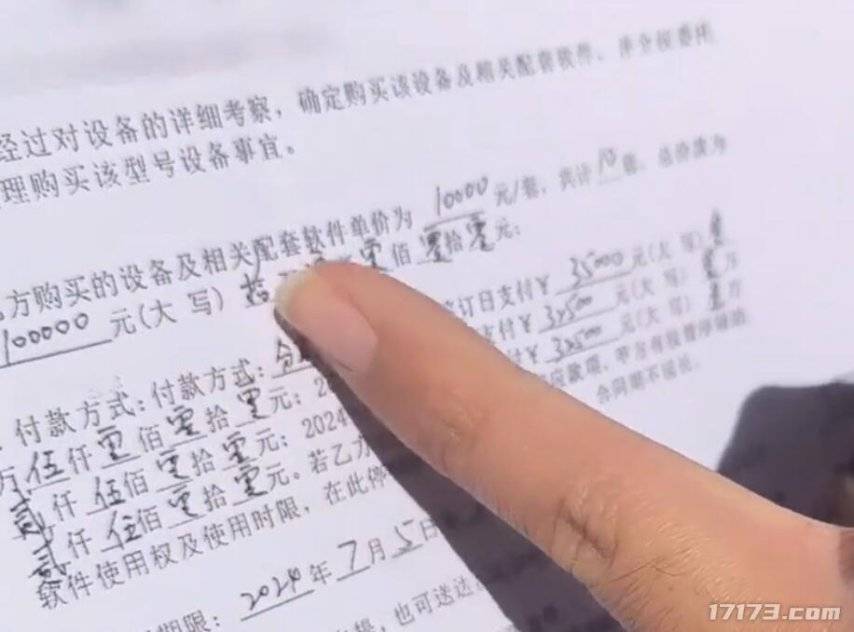 经过对设备的详细考察，确定购买该设备及相关配套软件，并
理购买该型号设备事宜。
方购买的设备及相关配套软件单价为 10000 元/套，共计 10 套，总价款为
100000 元(大 写) 拾 零佰 零拾 零元；
付款方式：付款方式：分 订日支付¥ 35000 元(大 写)
万 伍仟 零佰 零拾 零元；20 支付¥ 32500 元(大 写) 万
贰仟 伍佰 零拾 零元；2024 付¥ 32500 元(大 写) 万
贰仟 伍佰 零拾 零元。若乙方 应款项，甲方有权暂停
软件使用权及使用时限，在此停 合同期不延长。
期限：2024 年 7 月 5 日
，也可送达
17173.com